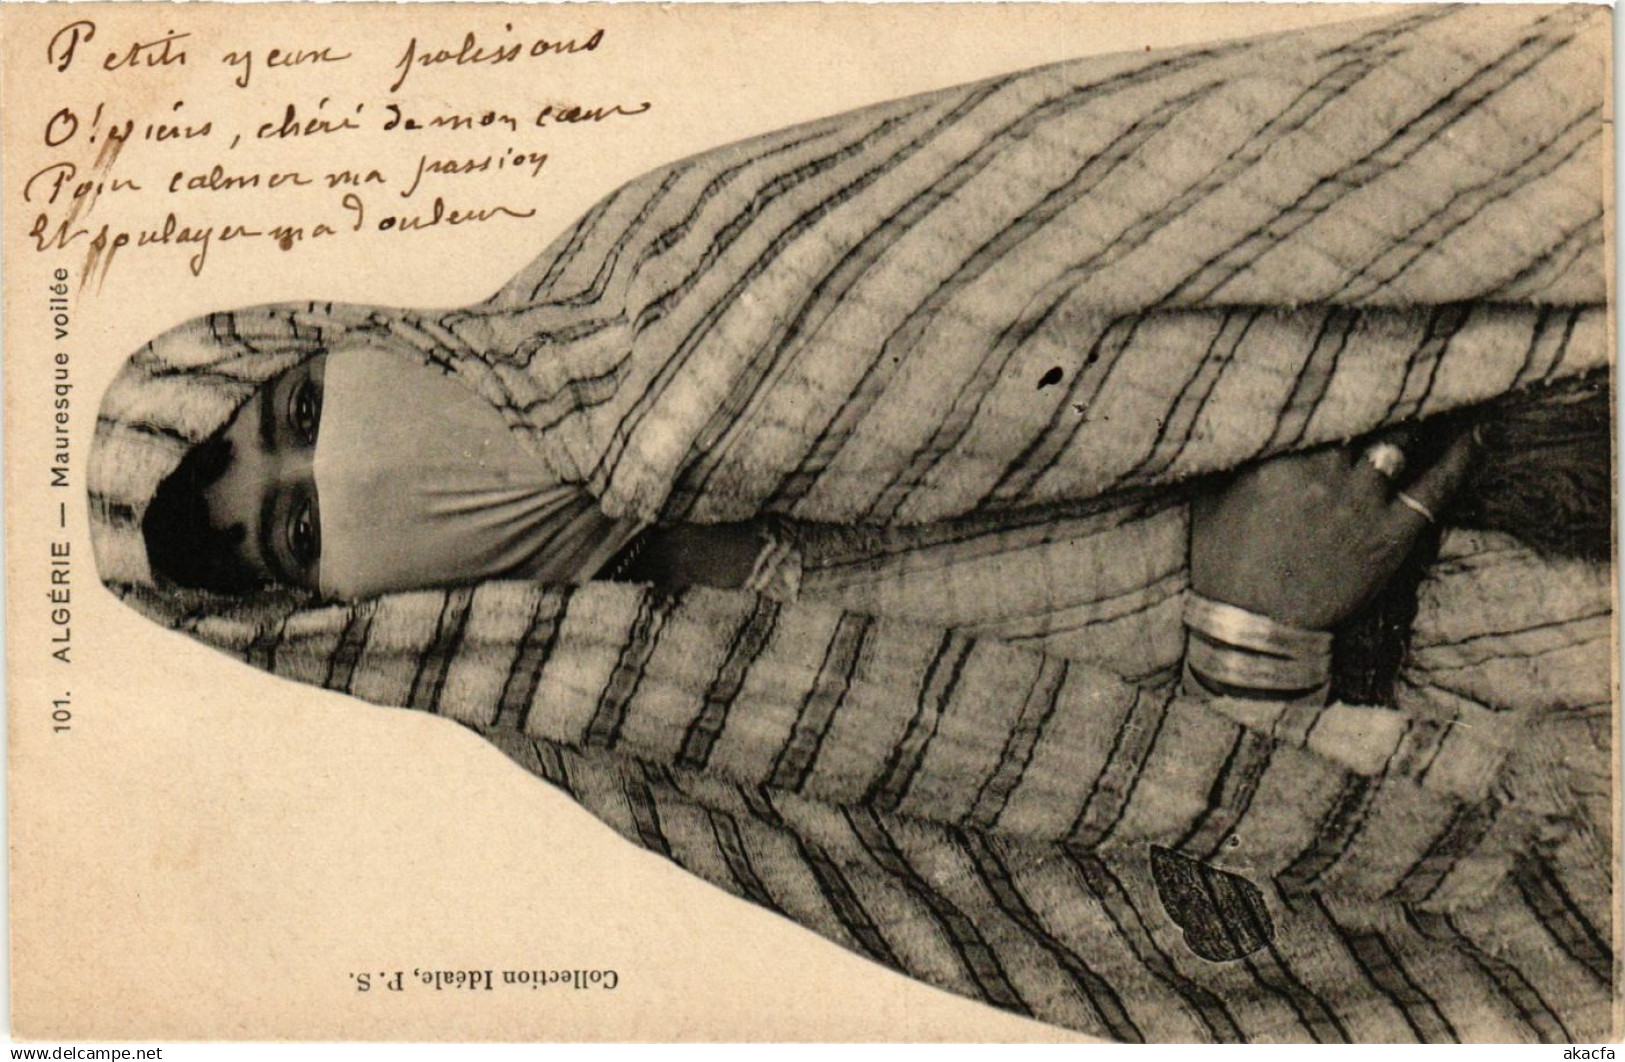 Petits yeux polissons
O! viens, chéri de mon cœur
Pour calmer ma passion
Et soulager ma douleur
101. ALGÉRIE — Mauresque voilée
Collection Idéale, P. S.
Delcampe.net
akacfa